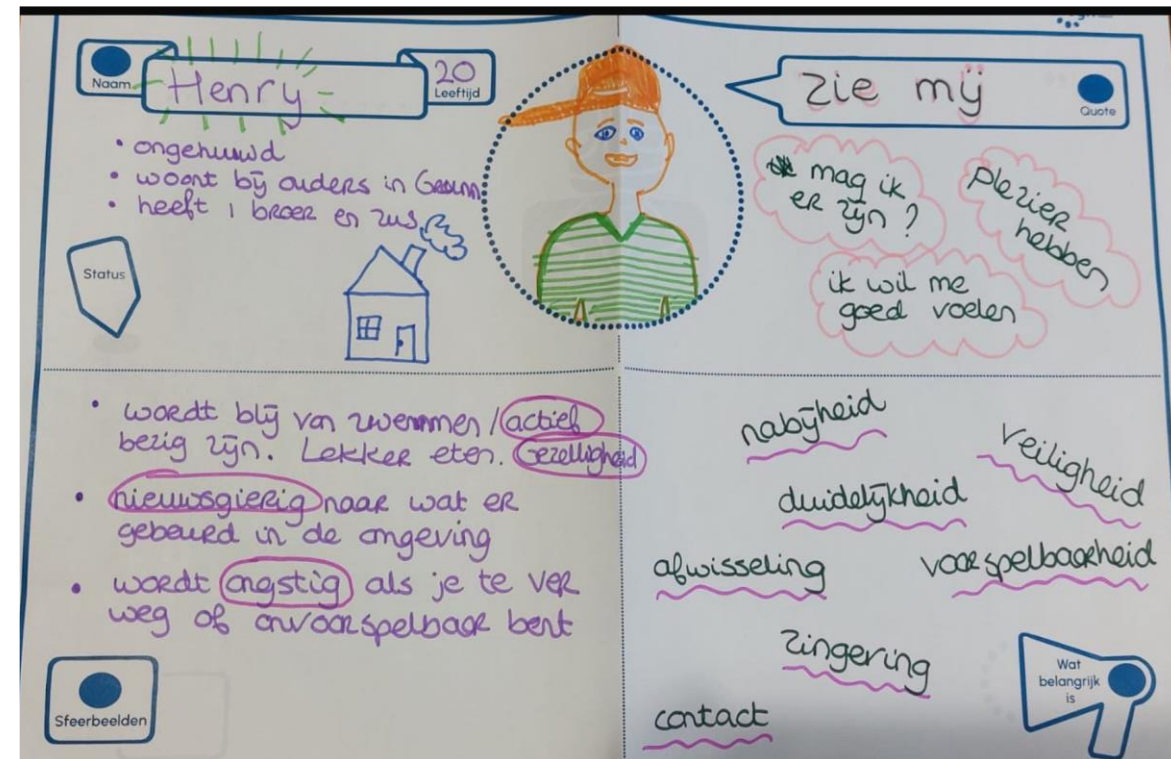 Naam
Henry
20
Leeftijd
• ongehuwd
• woont bij ouders in
• heeft 1 broer en zus
Status
zie mij
Quote
mag ik
er zijn?
Plezier
hebben
ik wil me
goed voelen
• wordt blij van zwemmen / actief
bezig zijn. Lekker eten. Gezelligheid
• nieuwsgierig naar wat er
gebeurd in de omgeving
• wordt angstig als je te ver
weg of onvoorspelbaar bent
Sfeerbeelden
nabijheid
veiligheid
duidelijkheid
afwisseling
voorspelbaarheid
zingering
contact
Wat
belangrijk
is